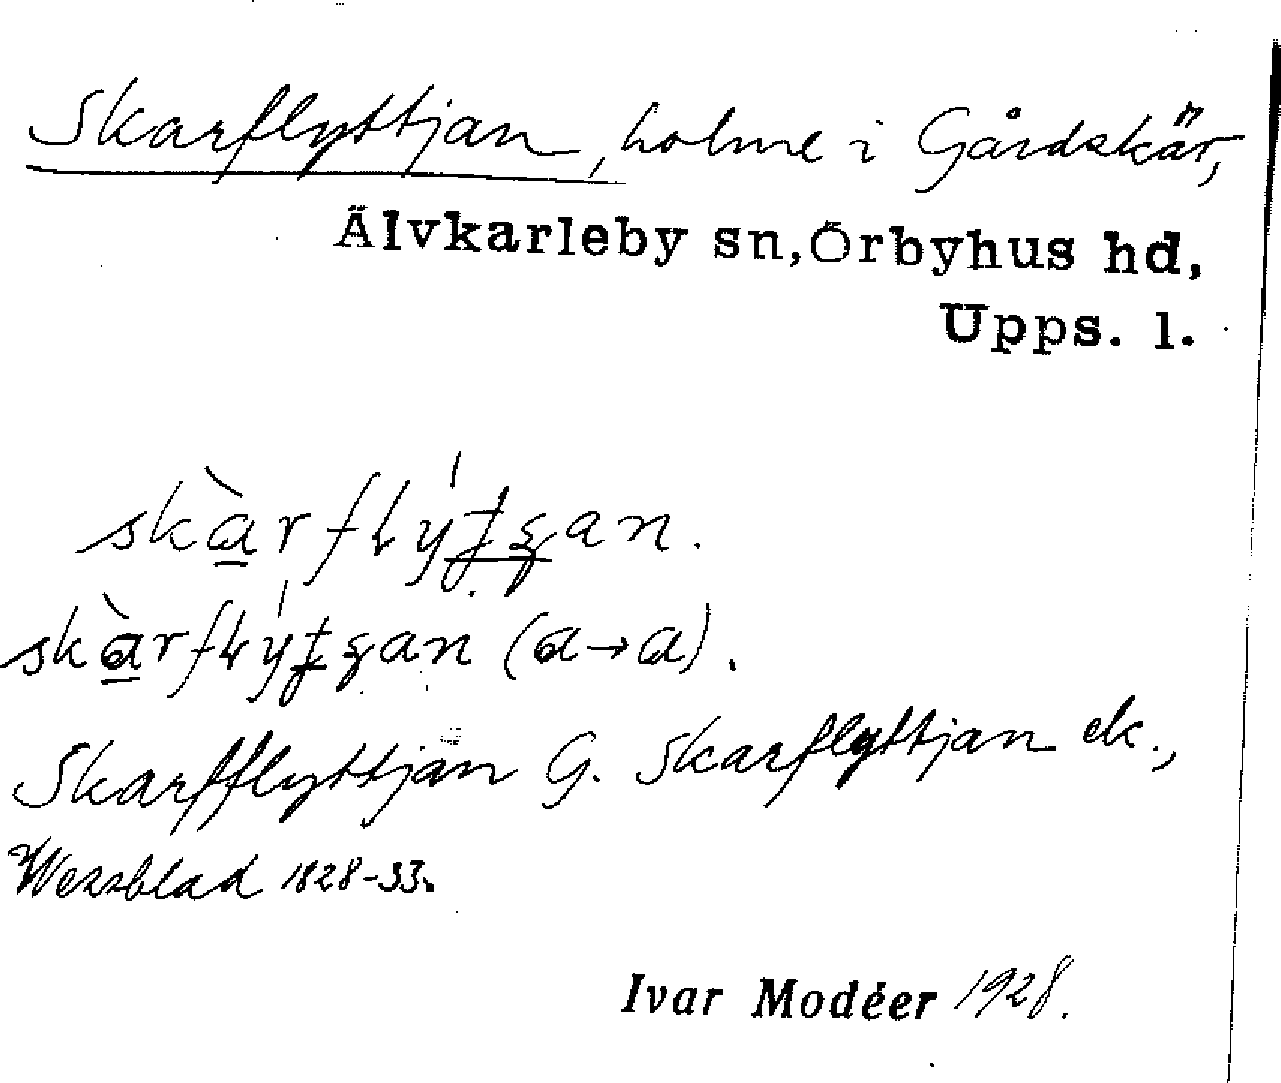 Skarflyttjan, holme i Gårdskär,
Älvkarleby sn, Örbyhus hd,
Upps. l.
Skarfflyttjan G. Skarflyttjan ek.,
Wessblad 1828-33.
Ivar Modéer 1928.